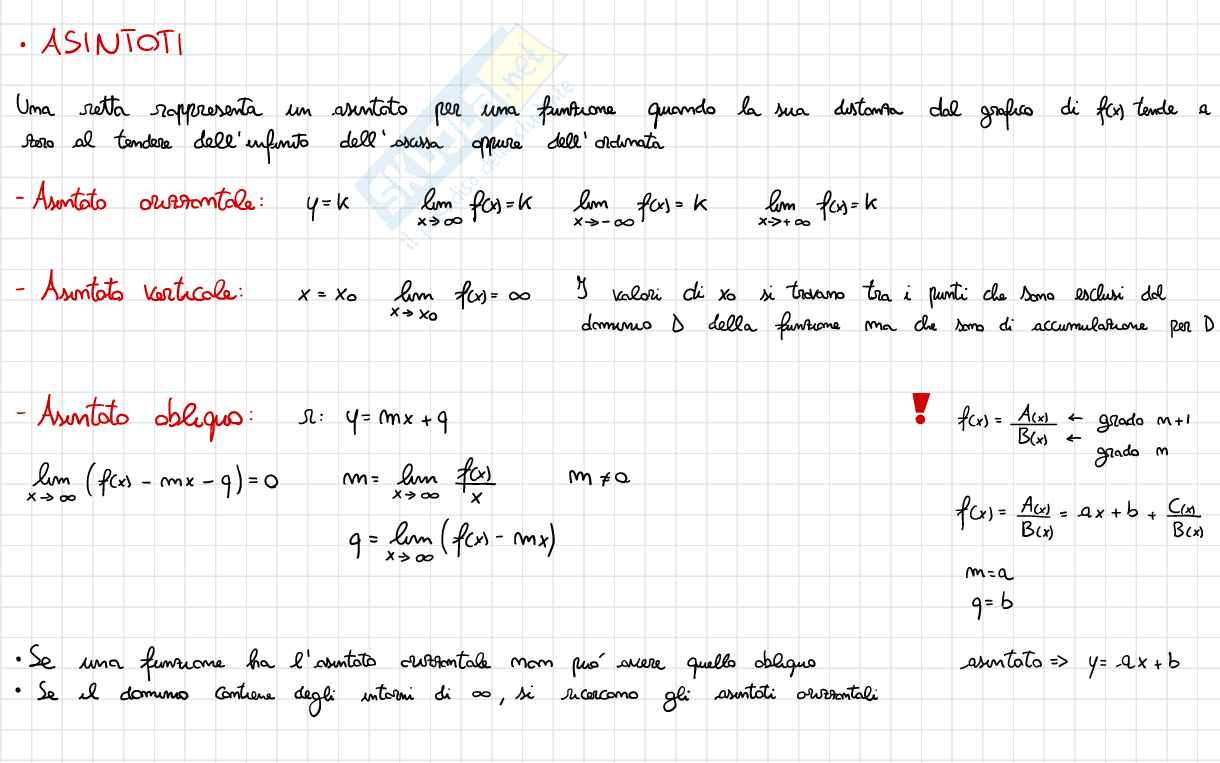 • ASINTOTI
Una retta rappresenta un asintoto per una funzione quando la sua distanza dal grafico di f(x) tende a
zero al tendere dell'infinito dell'ascissa oppure dell'ordinata
- Asintoto orizzontale: y = k lim x→∞ f(x) = k lim x→-∞ f(x) = k lim x→+∞ f(x) = k
- Asintoto verticale: x = x0 lim x→x0 f(x) = ∞ I valori di x0 si trovano tra i punti che sono esclusi dal
dominio D della funzione ma che sono di accumulazione per D
- Asintoto obliquo: r: y = mx + q
lim x→∞ (f(x) - mx - q) = 0 m = lim x→∞ f(x)/x m ≠ 0
q = lim x→∞ (f(x) - mx)
! f(x) = A(x)/B(x) ← grado n+1
← grado n
f(x) = A(x)/B(x) = ax + b + C(x)/B(x)
m = a
q = b
asintoto => y = ax + b
• Se una funzione ha l'asintoto orizzontale non può avere quello obliquo
• Se il dominio contiene degli intorni di ∞, si ricercano gli asintoti orizzontali
SKUOLA.net
il paradiso dello studente